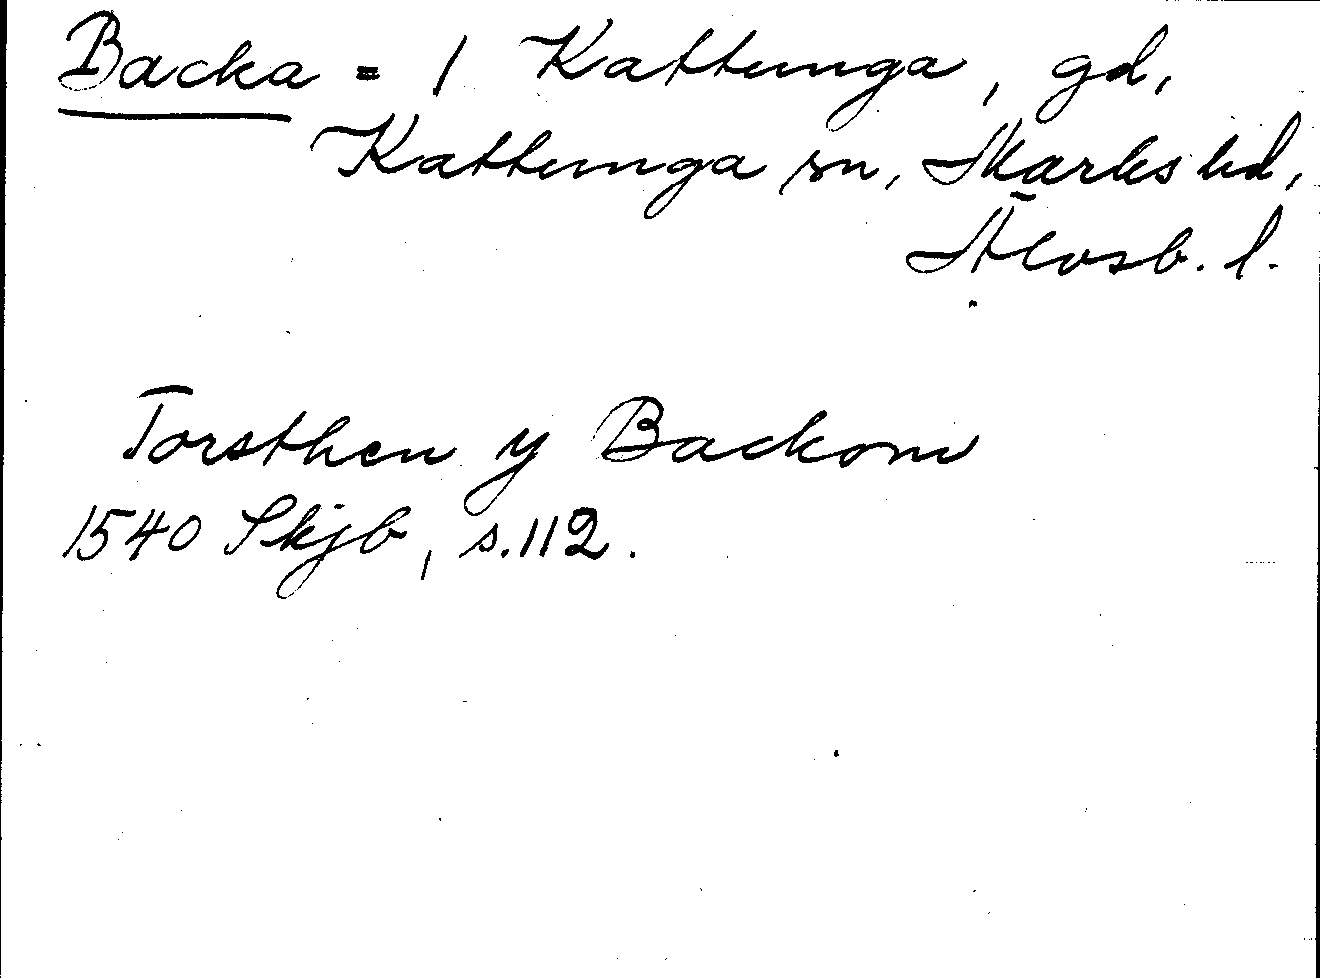 Backa = 1 Kattunga, gd,
Kattunga sn, Marks hd,
Älvsb. l.
Torsthen y Backom
1540 Skjb, s.112.